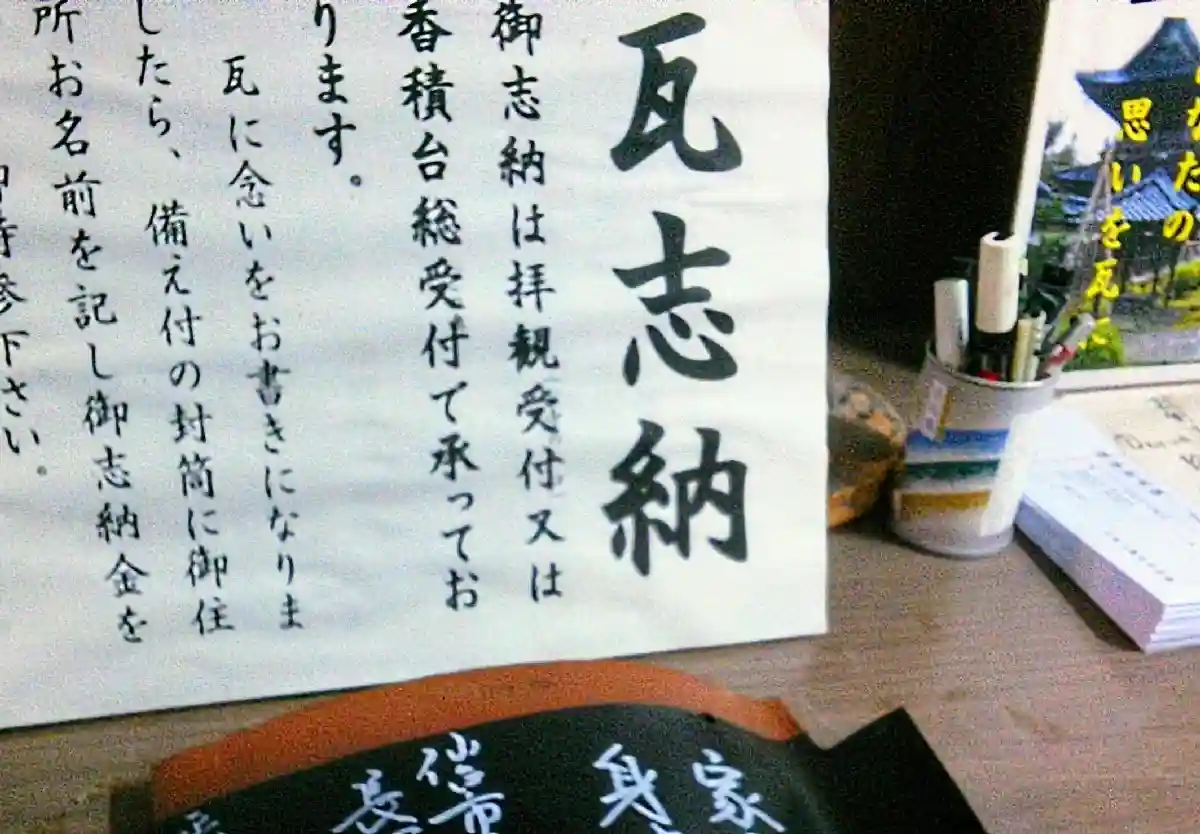 瓦志納
御志納は拝観受付又は
香積台総受付て承ってお
ります。
瓦に念いをお書きになりま
したら、備え付の封筒に御住
所お名前を記し御志納金を
下さい。
たの
思いを瓦
家
身
仙
長